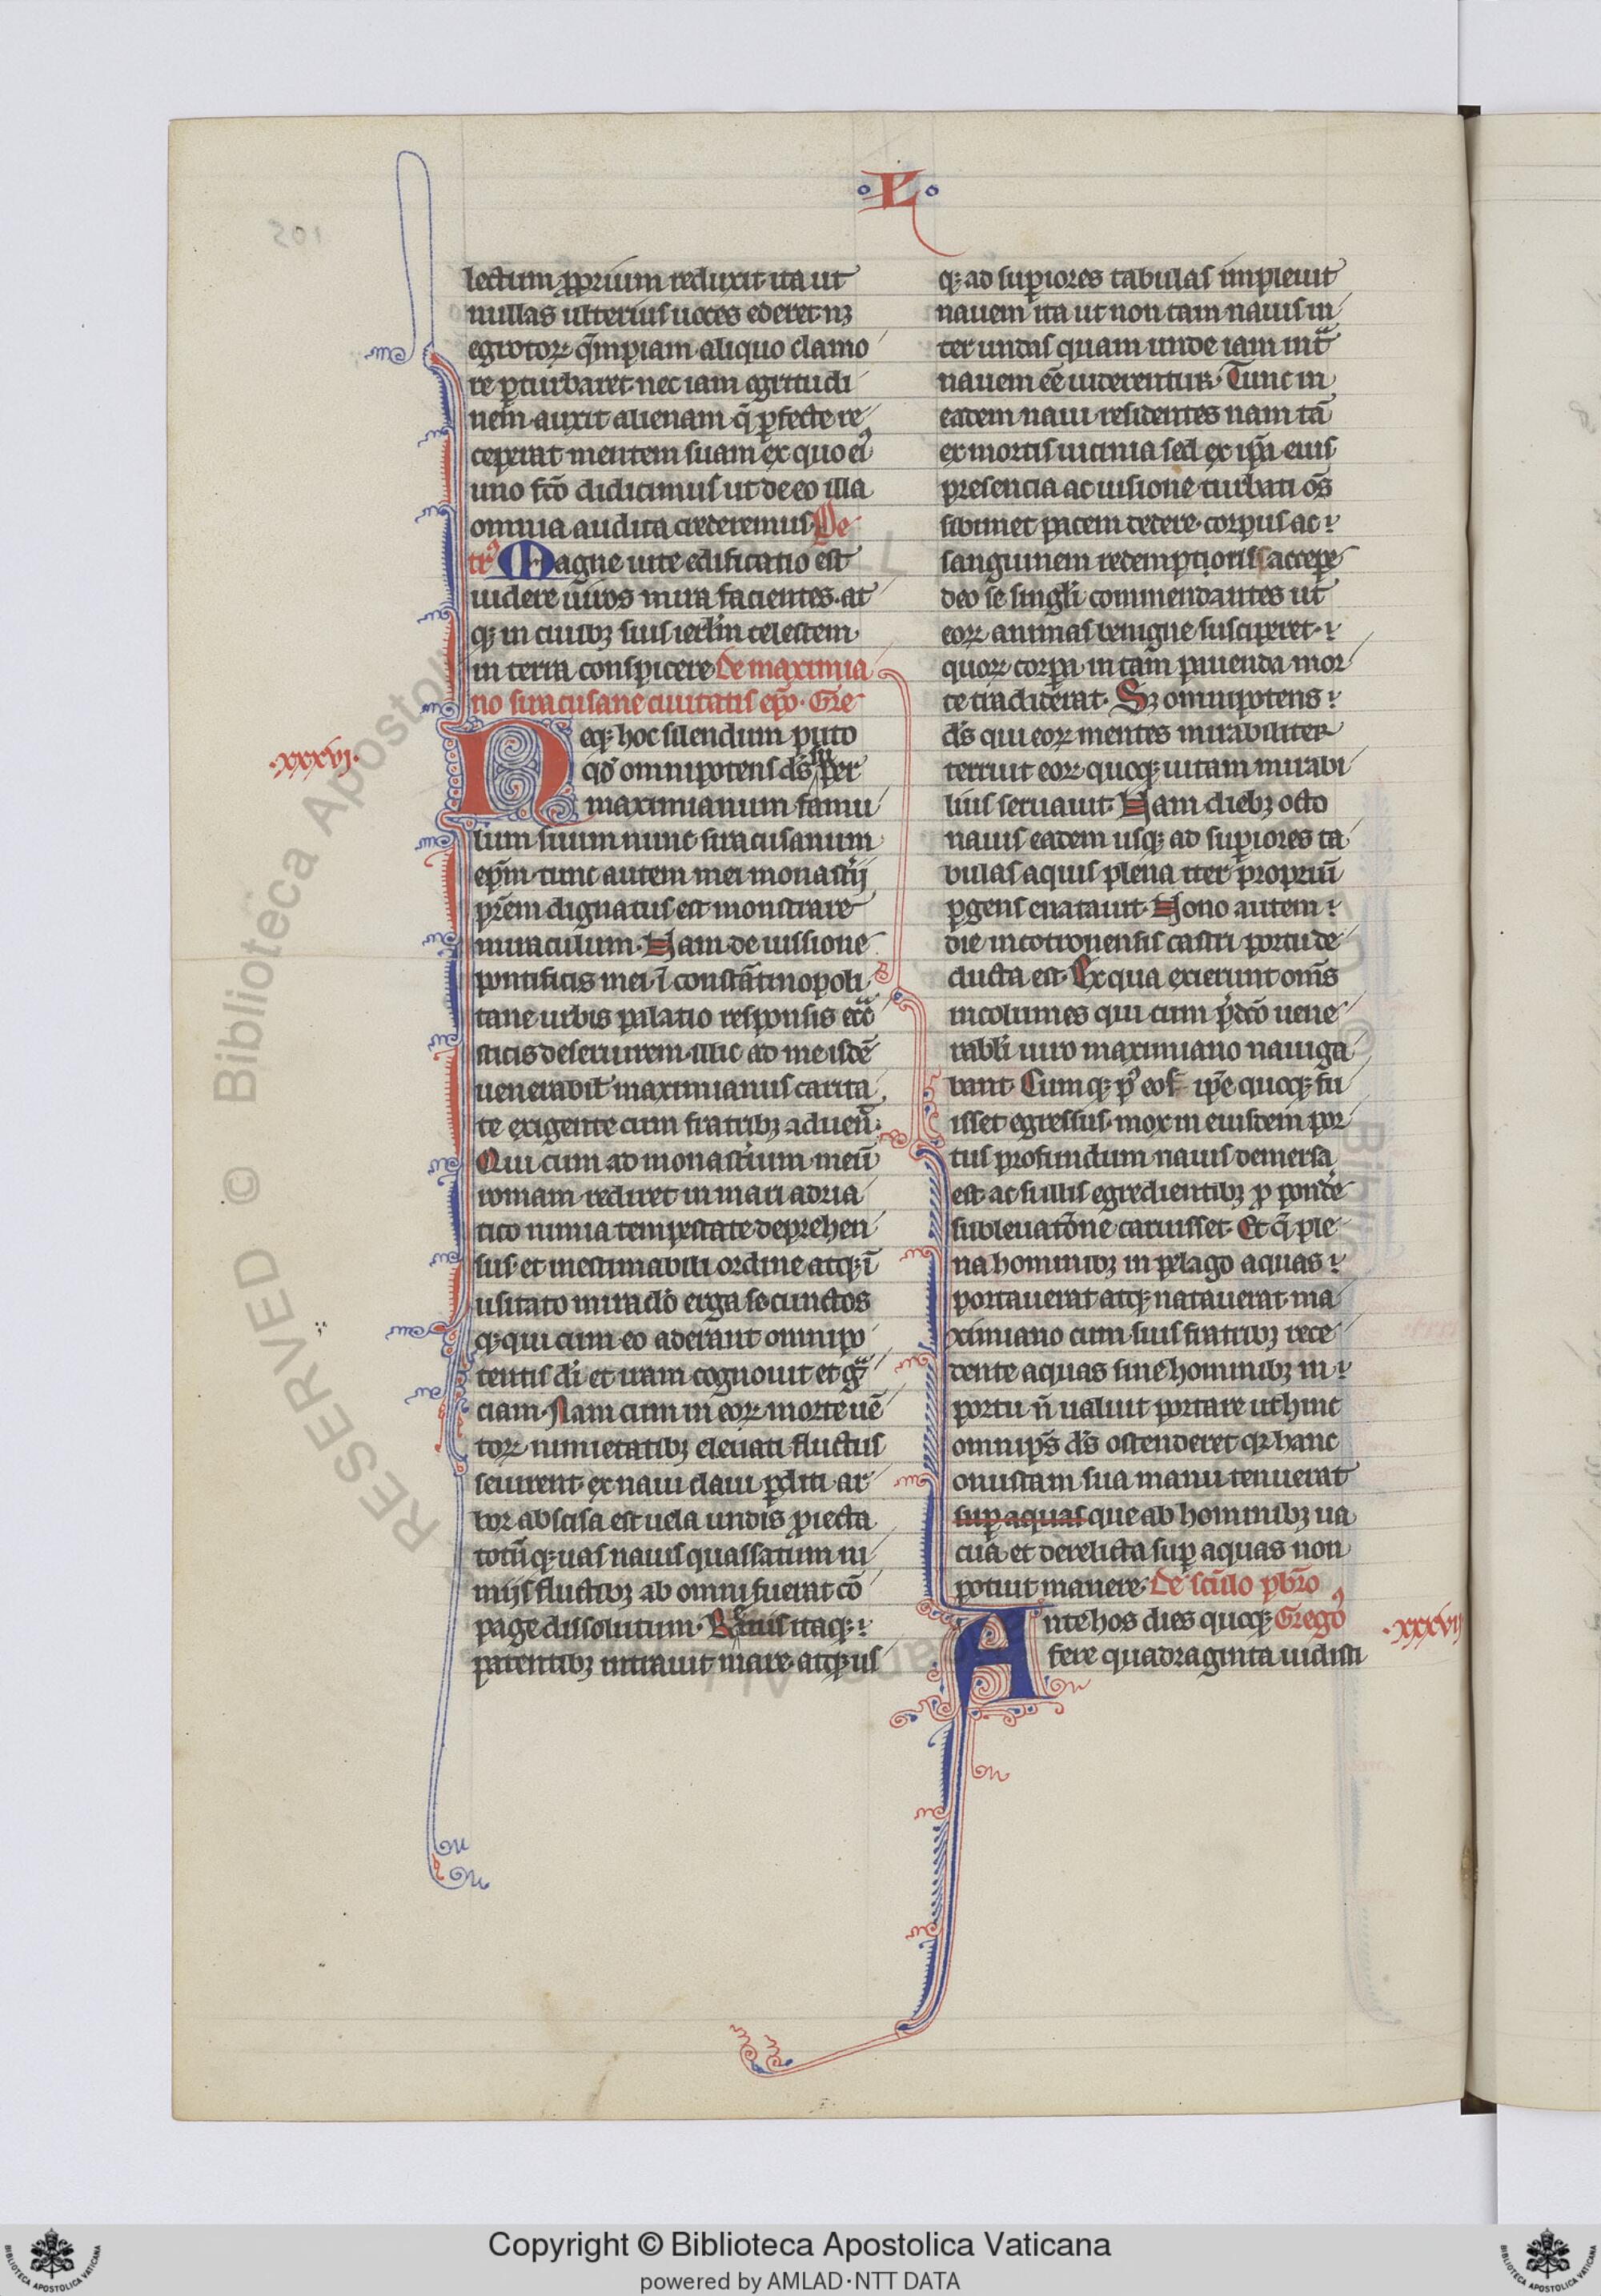 L
lectum proprium reduxit. ita ut
nullas ulterius uoces ederet. nꝫ
egrotoꝝ q̄mpiam aliquo clamo
re ꝑturbaret. nec iam egritudi
nem auxit alienam. q̄ ꝑfecte re
ceperat mentem suam. ex quo ei9
uno fc̄o didicimus ut de eo illa
omnia audita crederemus. Pe
tr9 Magne uite edificatio est
uidere uiros mira facientes. at
qꝫ in ciuibꝫ suis ierl̄m celestem
in terra conspicere. De maximia
no siracusane ciuitatis ep̄o. Gre
.xxxvi.
Neqꝫ hoc silendum puto
qd̄ omnipotens ds̄ suꝑ
maximianum famu
lum suum nunc siracusanum
ep̄m. tunc autem mei monastīi
pr̄em dignatus est monstrare
miraculum. Nam de iussione
pontificis mei. ī constātinopoli
tane urbis palatio responsis ecc̄ā
sticis deseruirem. illic ad me isdē
uenerabil̄ maximianus carita
te exigente cum fratribꝫ aduen̄.
Qui cum ad monast̄ium meū
romam rediret in mari adria
tico nimia tempestate deprehen
sus. et inestimabili ordine atqꝫ ī
usitato miraclō erga se cunctos
qꝫ qui cum eo aderant omnipo
tentis dī et iram cognouit et gr̄a
ciam. Nam cum in eoꝝ morte uē
toꝝ nimietatibꝫ eleuati fluctus
seuirent. ex naui claui ꝑditi. ar
bor abscisa est uela undis ꝓiecta
totū qꝫ uas nauis quassatum ni
mijs fluctibꝫ ab omni fuerat cō
page dissolutum. Rimis itaqꝫ
patentibꝫ intrauit mare. atqꝫ us
qꝫ ad suꝑiores tabulas impleuit
nauem ita ut non tam nauis in
ter undas quam unde iam int̄a
nauem eē̄ uiderentur. Tunc in
eadem naui residentes nam tā
ex mortis uicinia sed ex ip̄a eius
presencia ac uisione turbati. om̄s
sibimet pacem dedere. corpus ac
sanguinem redemptoris accepe
deo se singl̄i commendantes ut
eoꝝ animas benigne susciperet.
quoꝝ corpa in tam pauenda mor
te tradiderat. Sꝫ omnipotens
ds̄ qui eoꝝ mentes mirabiliter
terruit. eoꝝ quoqꝫ uitam mirabi
lius seruauit. Nam diebꝫ octo
nauis eadem usqꝫ ad suꝑiores ta
bulas aquis plena iter propriū
ꝑgens enatauit. Nono autem
die in cotronensis castri portu de
ducta est. Ex qua exierunt om̄s
incolumes qui cum p̄dc̄o uene
rabl̄i uiro maximiano nauiga
bant. Cumqꝫ p9 eos ip̄e quoqꝫ fu
isset egressus. mox in eiusdem por
tus profundum nauis demersa
est ac si illis egredientibꝫ ꝓ ponde
subleuatōne caruisset. Et q̄ ple
na hominibꝫ in pelago aquas
portauerat atqꝫ natauerat. ma
ximiano cum suis fratribꝫ rece
dente aquas sine hominibꝫ in
portu n̄ ualuit portare. ut hinc
omnip̄s ds̄ ostenderet qꝛ hanc
onustam sua manu tenuerat
suꝑ aquas que ab hominibꝫ ua
cua et derelicta suꝑ aquas non
potuit manere. De sc̄ulo pb̄ro
Ante hos dies quoqꝫ Grego9
.xxxvij
fere quadraginta uidisti